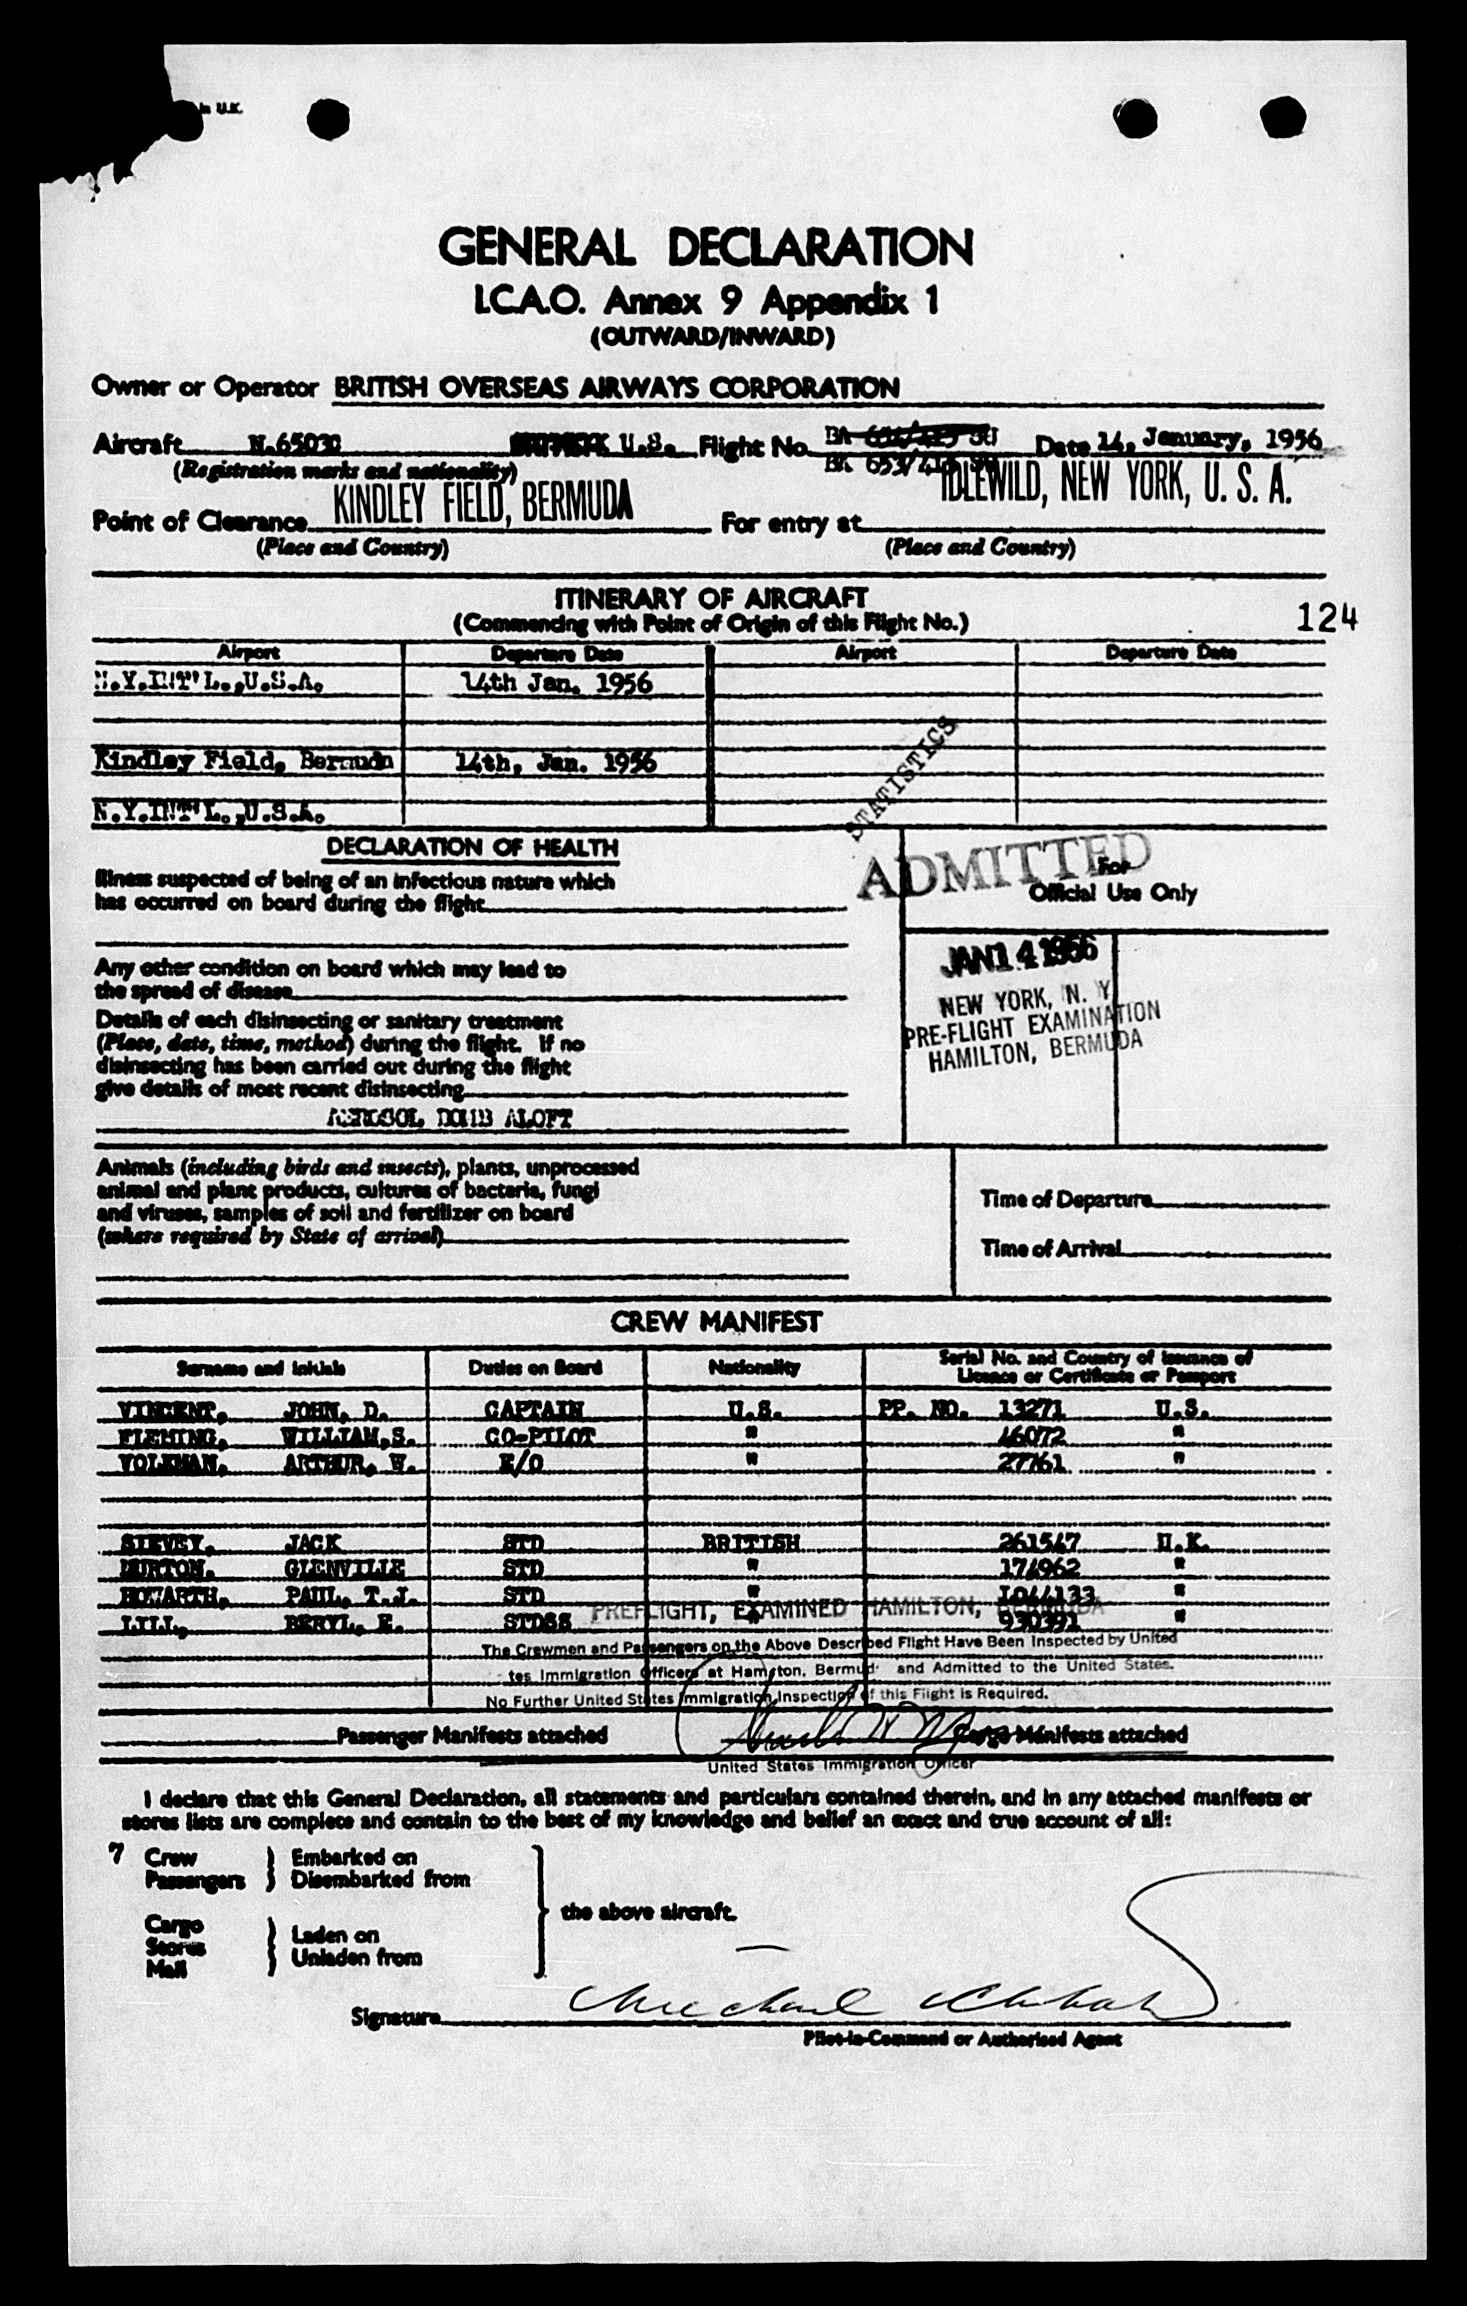 in U.K.
GENERAL DECLARATION
I.C.A.O. Annex 9 Appendix 1
(OUTWARD/INWARD)
Owner or Operator BRITISH OVERSEAS AIRWAYS CORPORATION
Aircraft N.65030 U.S. Flight No. BA 653/ Date 14, January, 1956
(Registration marks and nationality)
Point of Clearance KINDLEY FIELD, BERMUDA For entry at IDLEWILD, NEW YORK, U. S. A.
(Place and Country) (Place and Country)
ITINERARY OF AIRCRAFT
(Commencing with Point of Origin of this Flight No.) 124
Airport Departure Date Airport Departure Date
N.Y.INT'L.,U.S.A. 14th Jan. 1956
Kindley Field, Bermuda 14th, Jan. 1956
STATISTICS
N.Y.INT'L.,U.S.A.
DECLARATION OF HEALTH
ADMITTED
For
Official Use Only
Illness suspected of being of an infectious nature which
has occurred on board during the flight
Any other condition on board which may lead to
the spread of disease
JAN 14 1956
NEW YORK, N. Y
PRE-FLIGHT EXAMINATION
HAMILTON, BERMUDA
Details of each disinsecting or sanitary treatment
(Place, date, time, method) during the flight. If no
disinsecting has been carried out during the flight
give details of most recent disinsecting
AEROSOL BOMB ALOFT
Animals (including birds and insects), plants, unprocessed
animal and plant products, cultures of bacteria, fungi
and viruses, samples of soil and fertilizer on board
(where required by State of arrival)
Time of Departure
Time of Arrival
CREW MANIFEST
Surname and Initials Duties on Board Nationality Serial No. and Country of Issuance of
Licence or Certificate or Passport
VINCENT, JOHN, D. CAPTAIN U.S. PP. NO. 13271 U.S.
FLEMING, WILLIAM,S. CO-PILOT " 46072 "
VOLKMAN, ARTHUR, W. E/O " 27761 "
SIEVEY, JACK STD BRITISH 261547 U.K.
BURTON, GLENVILLE STD " 174962 "
HOGARTH, PAUL, T.J. STD " 1044133 "
LILL, BERYL, E. STDSS " 930391 "
PREFLIGHT, EXAMINED HAMILTON, BERMUDA
The Crewmen and Passengers on the Above Described Flight Have Been Inspected by United
tes Immigration Officers at Hamilton, Bermud and Admitted to the United States.
No Further United States Immigration Inspection of this Flight is Required.
Passenger Manifests attached Cargo Manifests attached
United States Immigration Officer
I declare that this General Declaration, all statements and particulars contained therein, and in any attached manifests or
stores lists are complete and contain to the best of my knowledge and belief an exact and true account of all:
7 Crew } Embarked on
Passengers } Disembarked from
the above aircraft.
Cargo } Laden on
Stores
Mail } Unladen from
Signature
Pilot-in-Command or Authorised Agent